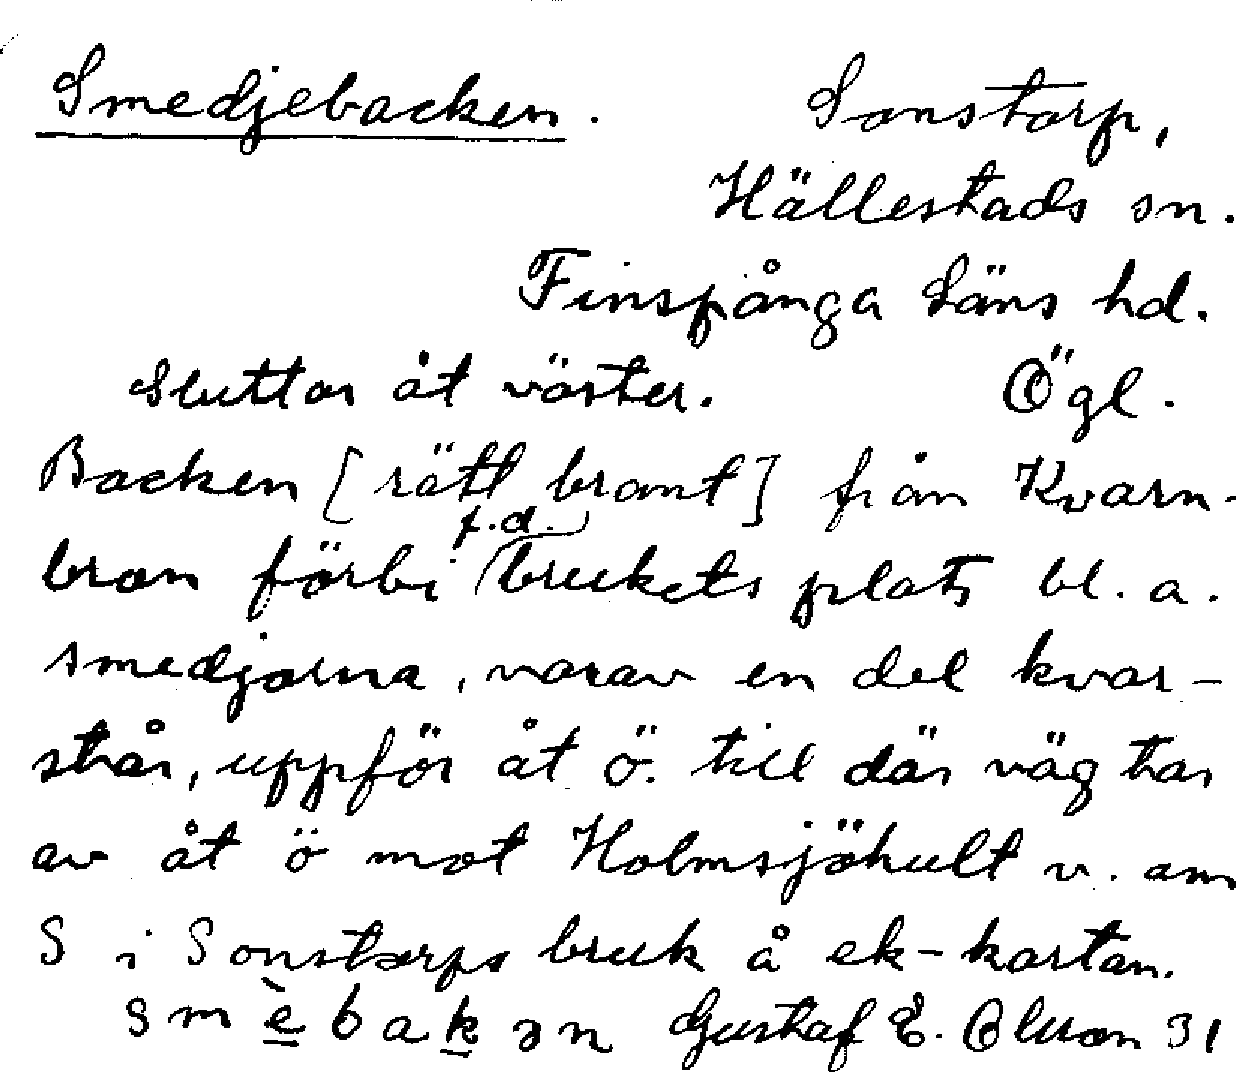 Smedjebacken. Sonstorp,
Hällestads sn.
Finspånga Läns hd.
Sluttar åt väster. Ögl.
Backen [rätt brant] från Kvarn-
bron förbi f.d. brukets plats bl. a.
smedjorna, varav en del kvar-
står, uppför åt ö. till där väg tar
av åt ö mot Holmsjöhult v. om
S i Sonstorps bruk å ek-kartan.
smèbakən Gustaf E. Olsson 31